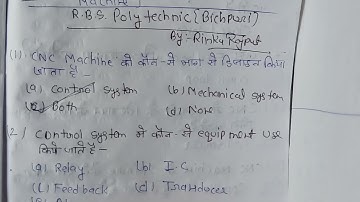 Machine
R.B.S. Polytechnic (Bichpuri)
By:- Rinku Rajput
(1) CNC Machine को कौन-से भागो से डिजाइन किया
जाता है -
(a) Control System (b) Mechanical System
(c) Both (d) None
(2) Control System मे कौन-से equipment use
किये जाते है -
(a) Relay (b) I.C
(c) Feedback (d) Transducer